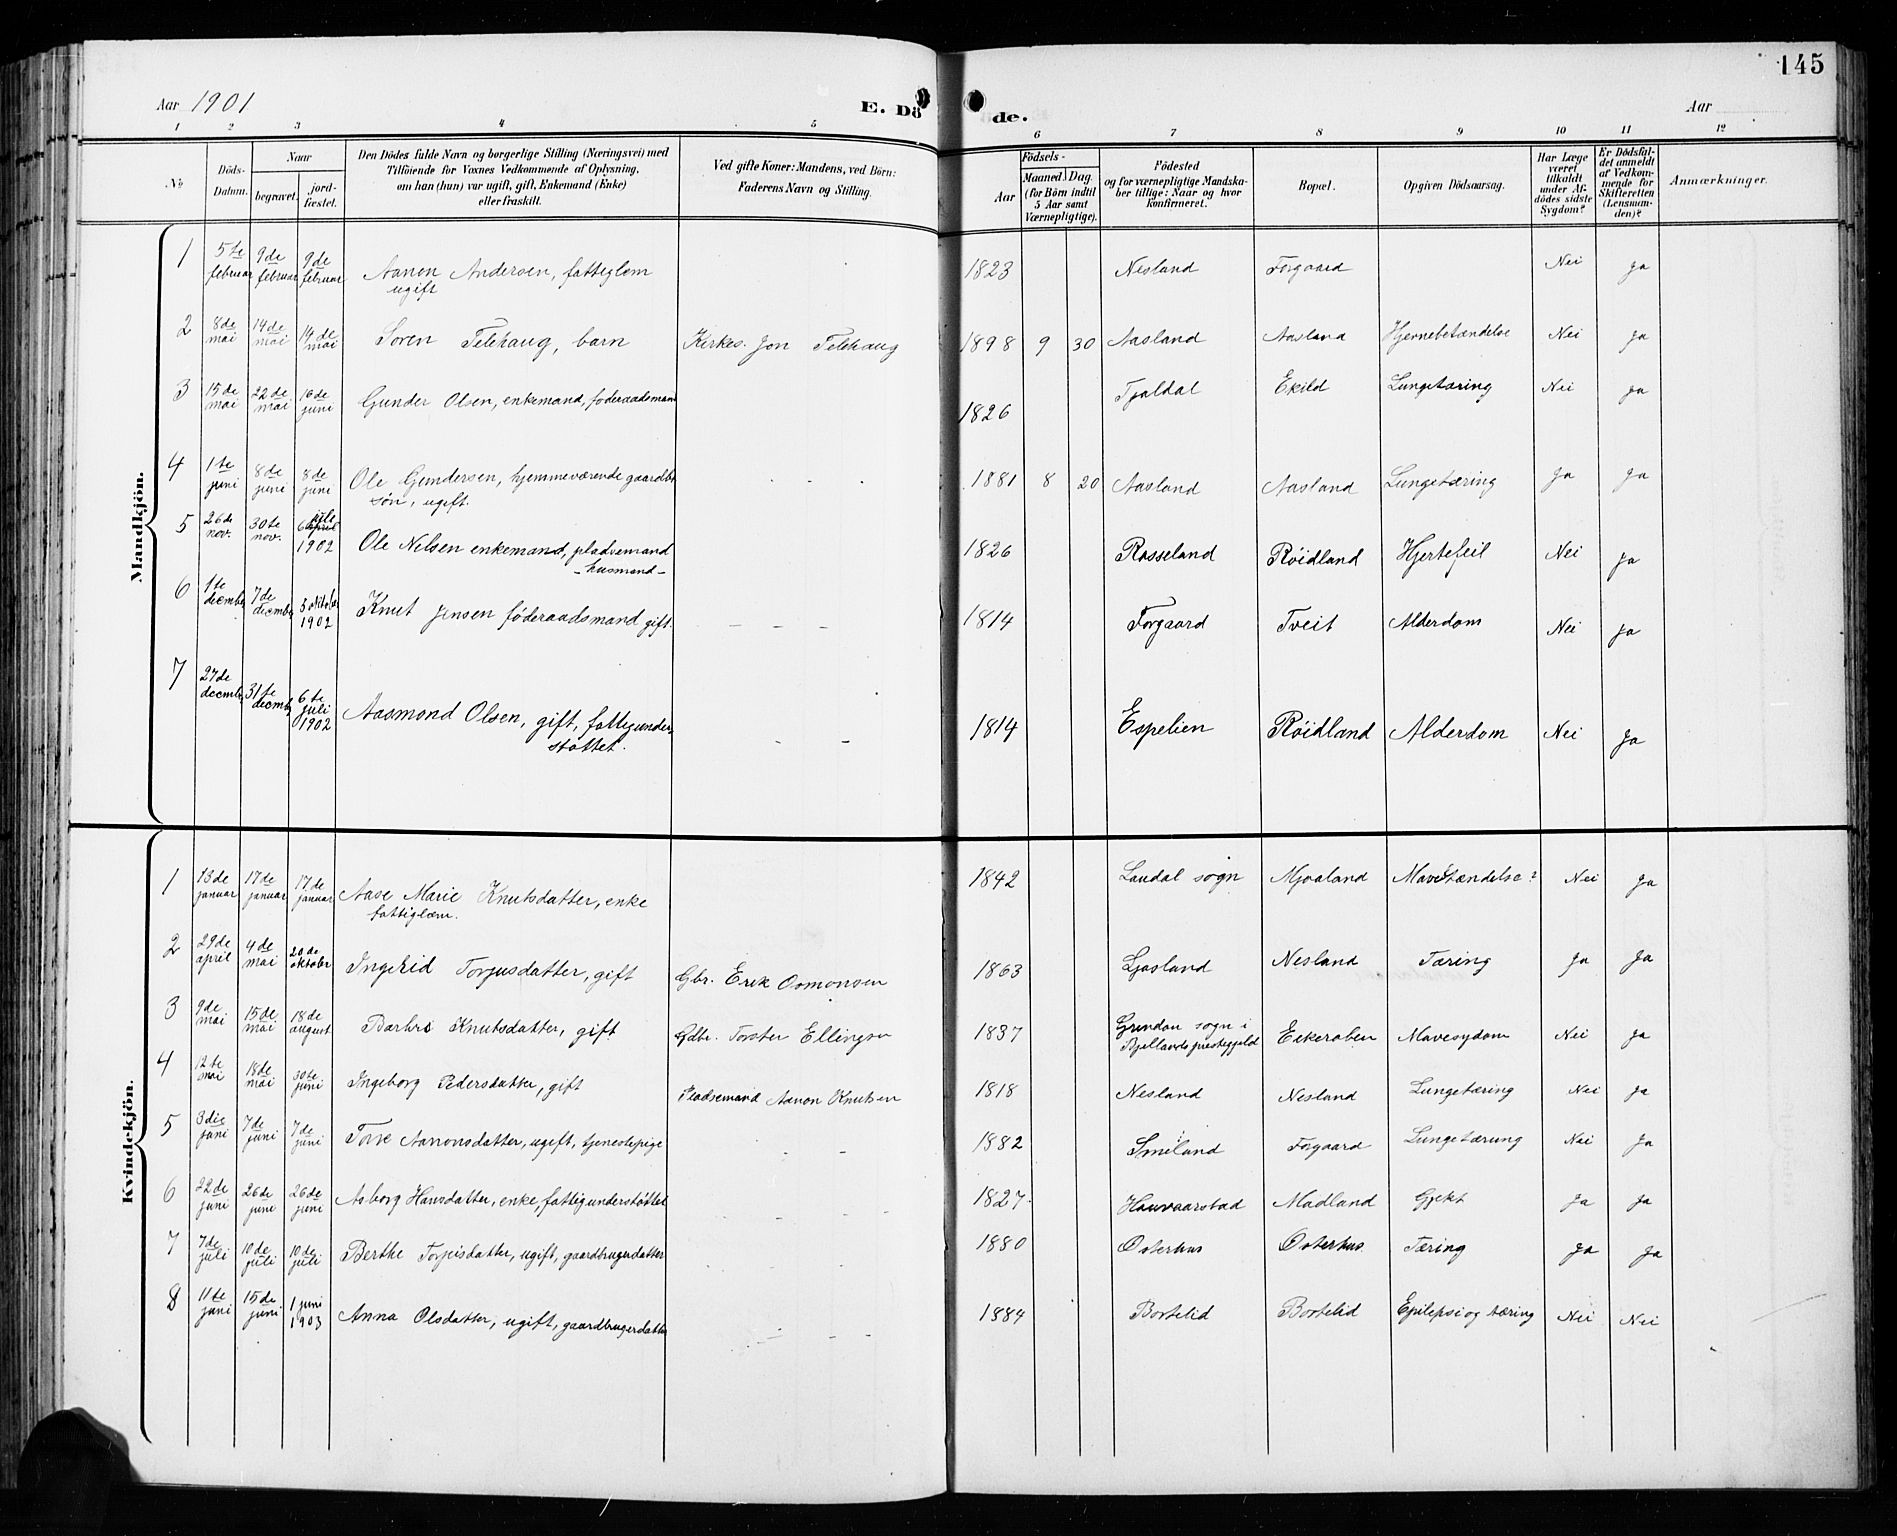 145
Aar 1901 E. Dö de. Aar
1 2 3 4 5 6 7 8 9 10 11 12
No Döds-Datum. Naar begravet. jord-fæstet. Den Dödes fulde Navn og borgerlige Stilling (Næringsvei) med Tilföiende for Voxnes Vedkommende af Oplysning, om han (hun) var ugift, gift, Enkemand (Enke) eller fraskilt. Ved gifte Koner: Mandens, ved Börn: Faderens Navn og Stilling. Födsels- Aar Maaned Dag. (for Børn indtil 5 Aar samt Værnepligtige). Födested og for værnepligtige Mandska-ber tillige: Naar og hvor konfirmeret. Bopæl. Opgiven Dödsaarsag. Har Læge været tilkaldt under Af-dödes sidste Sygdom? Er Dödsfal-det anmeldt af Vedkom-mende for Skifteretten (Lensman-den)? Anmærkninger.
Mandkjön.
1 5te februar 9de februar 9de februar Aanon Andersen, fattiglem ugift 1823 Nesland Forgaard Nei Ja
2 8de mai 14de mai 14de mai Soren Telehaug, barn Kirkes. Jon Telehaug 1898 9 30 Aasland Aasland Hjernebetændelse Nei Ja
3 15de mai 22de mai 16de juni Gunder Olsen, enkemand, foderaadsmand 1826 Tjaldal Ekild Lungetæring Nei Ja
4 1te juni 8de juni 8de juni Ole Gundersen, hjemmeværende gaardbr søn, ugift. 1881 8 20 Aasland Aasland Lungetæring Ja Ja
5 26de nov. 30te nov. 6 juli 1902 Ole Nelsen enkemand, pladsemand -husmand- 1826 Rosseland Røidland Hjertefeil Nei Ja
6 1te decembr 7de decembr 5 oktober 1902 Knut Jensen føderaadsmand gift. 1814 Forgaard Tveit Alderdom Nei Ja
7 27de decembr 31te decemb 6te juli 1902 Aasmond Olsen, gift, fattigunder-støttet. 1814 Espelien Røidland Alderdom Nei Ja
Kvindekjön.
1 13de januar 17de januar 17de januar Aase Marie Knutsdatter, enke fattiglæm. 1842 Laudal sogn Mjoaland Mavebetændelse? Nei Ja
2 29de april 4de mai 20de oktober Ingerid Torjusdatter, gift Gbr. Erik Osmonsen 1863 Ljosland Nesland Tæring Ja Ja
3 9de mai 15de mai 18de august Barbro Knutsdatter, gift Gdbr. Torster Ellingsen 1837 Grindem sogn i Bjellands prestegjeld Eikeraben Mavesygdom Nei Ja
4 12te mai 18de mai 30te juni Ingeborg Pedersdatter, gift Pladsemand Aanon Knutsen 1818 Nesland Nesland Lungetæring Nei Ja
5 3die juni 7de juni 7de juni Tore Aanonsdatter, ugift, tjenestepige 1882 Smeland Forgaard Lungetæring Nei Ja
6 22de juni 26de june 26de juni Asborg Hansdatter, enke, fattigunderstøttet 1827 Hauvaarstad Madland Gjekt Ja Ja
7 7de juli 10de juli 10de juli Berthe Torjeisdatter, ugift, gaardbrugerdatter 1880 Osterhus Osterhus. Tæring Ja Ja
8 11te juni 15de juni 1 juni 1903 Anna Olsdatter, ugift, gaardbrugerdatter 1884 Bortelid Bortelid Epilepsi og tæring Nei Nei